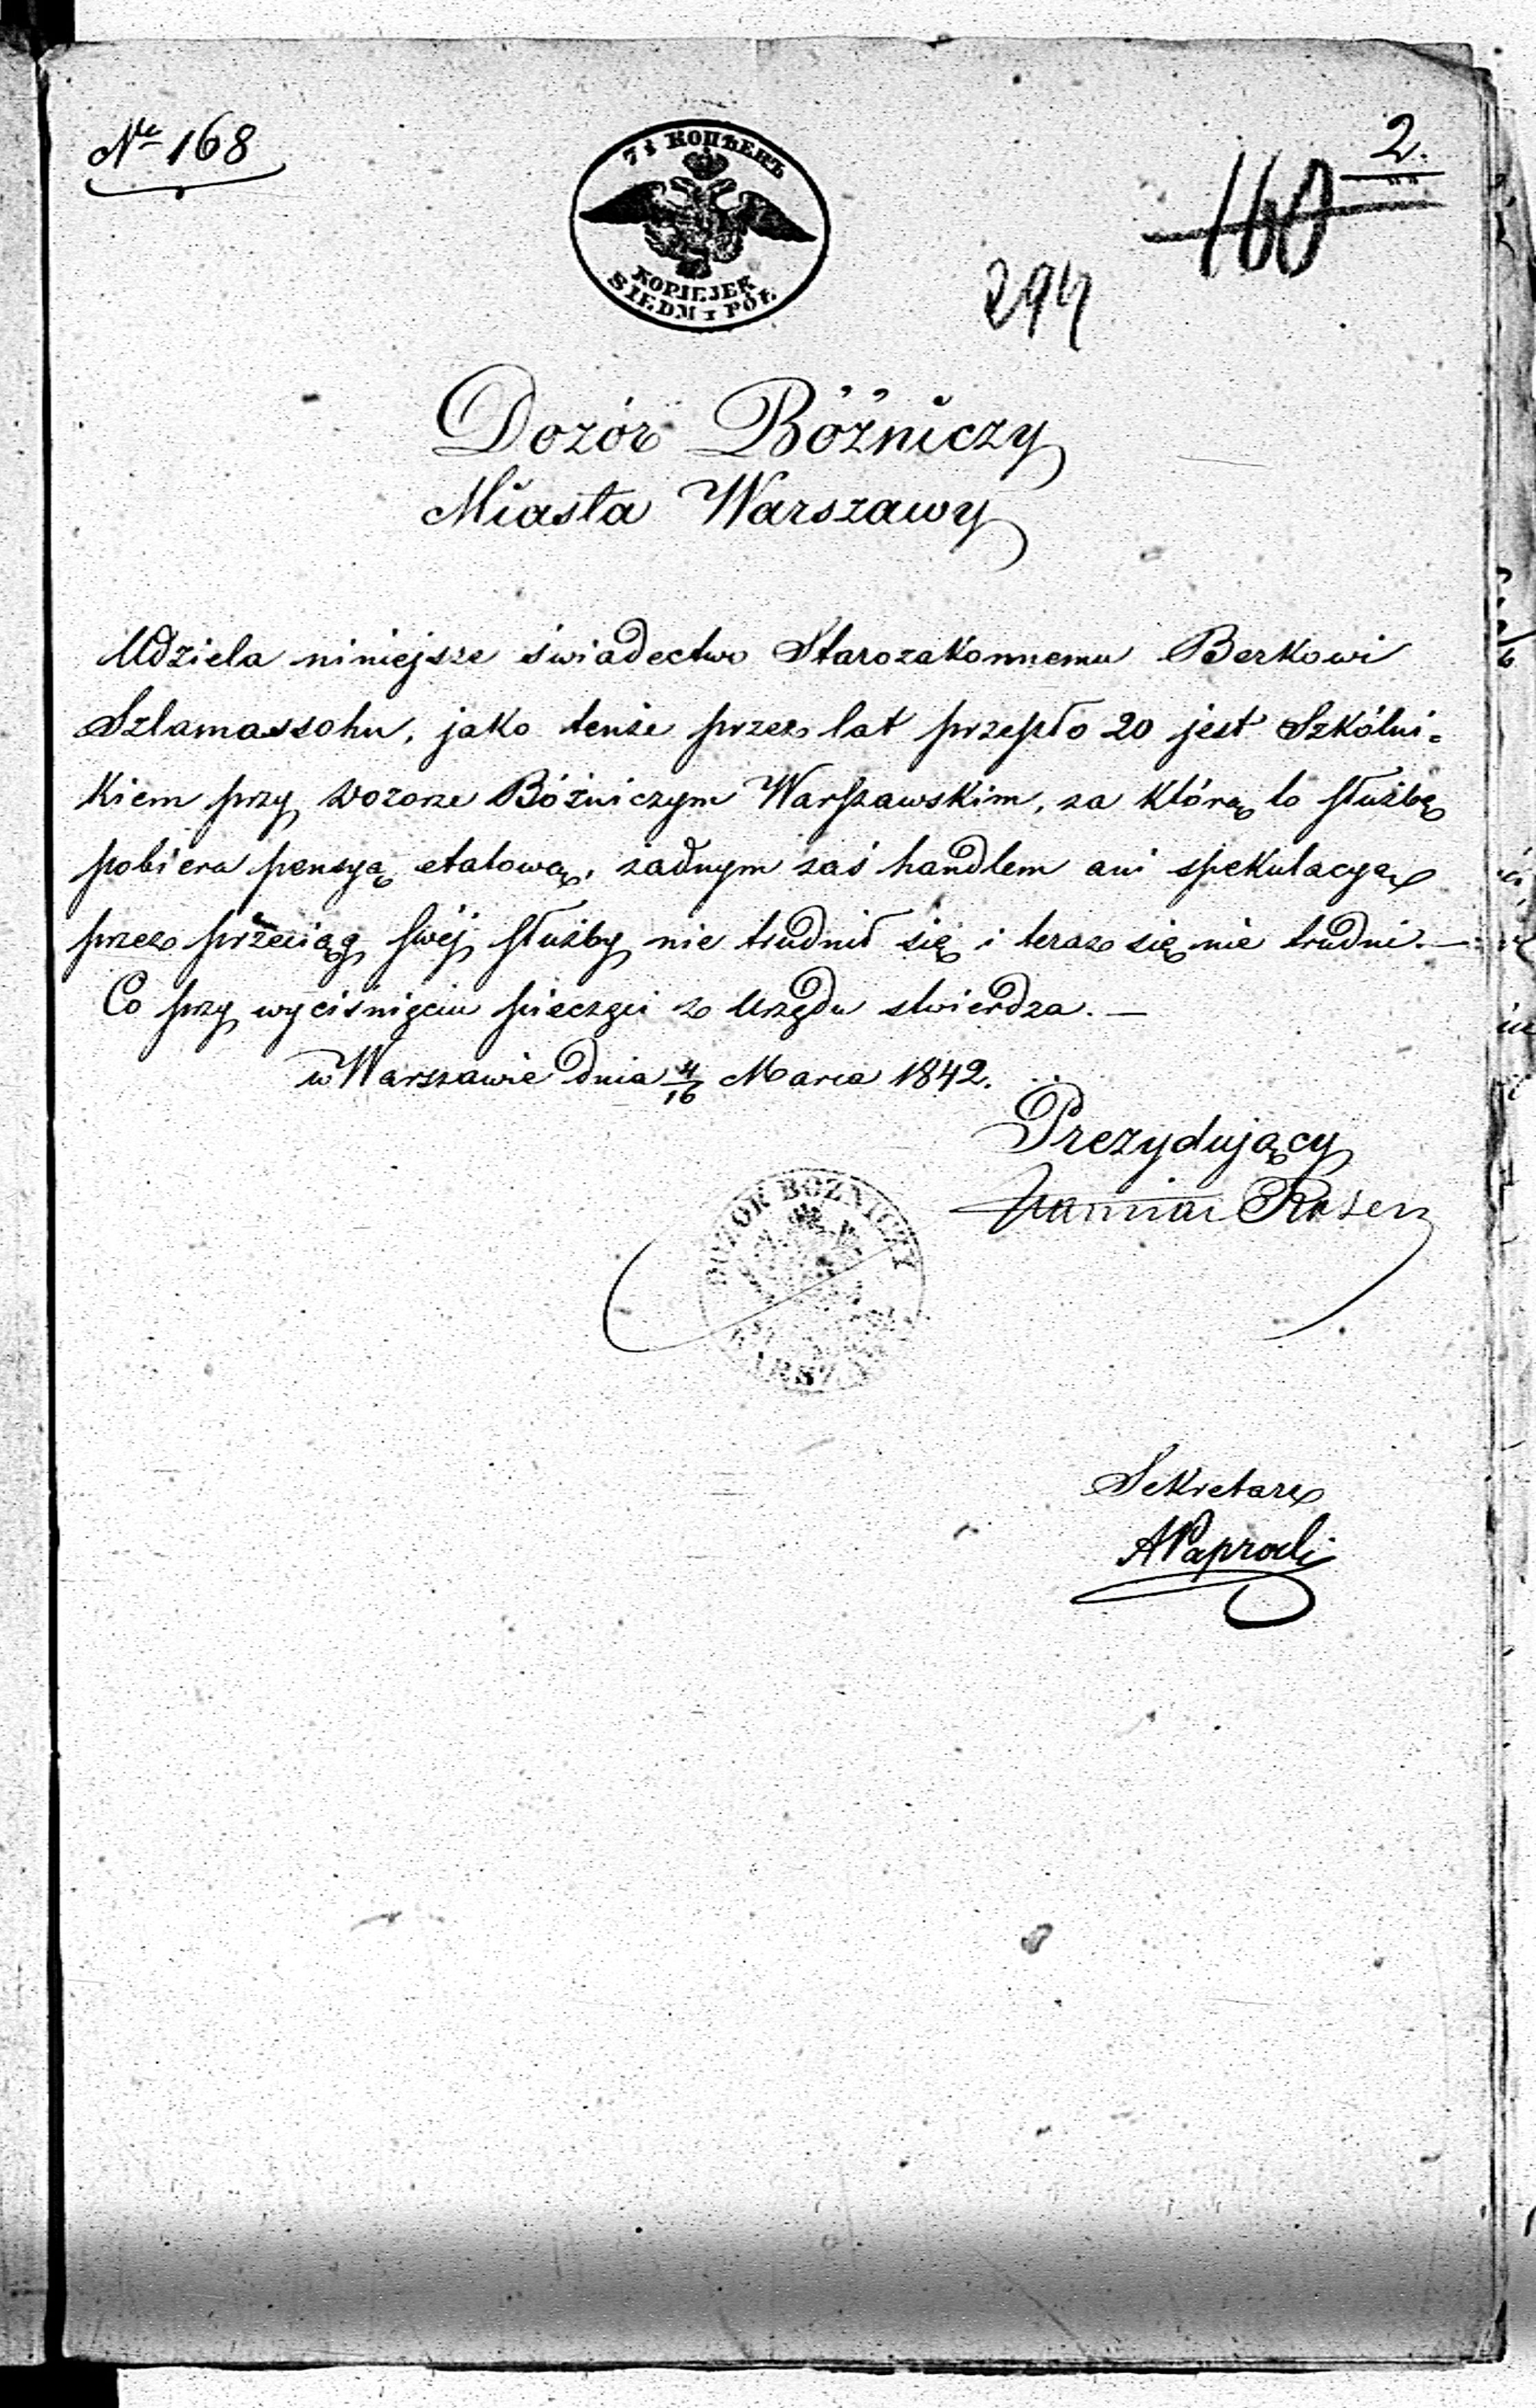 № 168
2.
7½ КОПѢЕКЪ
KOPIEJEK
SIEDM I PÓŁ
160
294
Dozór Bóżniczy
Miasta Warszawy
Udziela niniejsze świadectwo Starozakonnemu Berkowi
Szlamassohn, jako tenże przez lat przeszło 20 jest Szkólni=
kiem przy Dozorze Bóżniczym Warszawskim, za którą to służbę
pobiera pensyą etatową, żadnym zaś handlem ani spekulacyą
przez przeciąg swéj służby nie trudnił się i teraz się nie trudni. —
Co przy wyciśnięciu pieczęci z Urzędu stwierdza. —
w Warszawie dnia 4/16 Marca 1842.
Prezydujący
Rosen
DOZÓR BÓŻNICZY
Sekretarz
A Paprocki